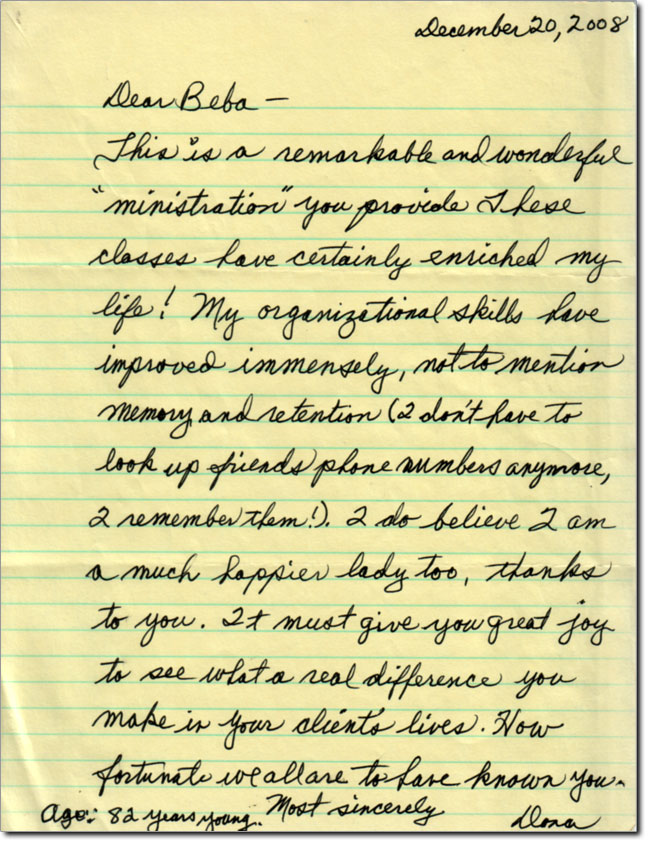 December 20, 2008
Dear Beba —
This is a remarkable and wonderful
"ministration" you provide These
classes have certainly enriched my
life! My organizational skills have
improved immensely, not to mention
memory and retention (I don't have to
look up friends' phone numbers anymore,
I remember them!). I do believe I am
a much happier lady too, thanks
to you. It must give you great joy
to see what a real difference you
make in your client's lives. How
fortunate we all are to have known you.
Most sincerely
Age: 82 years young. Dona